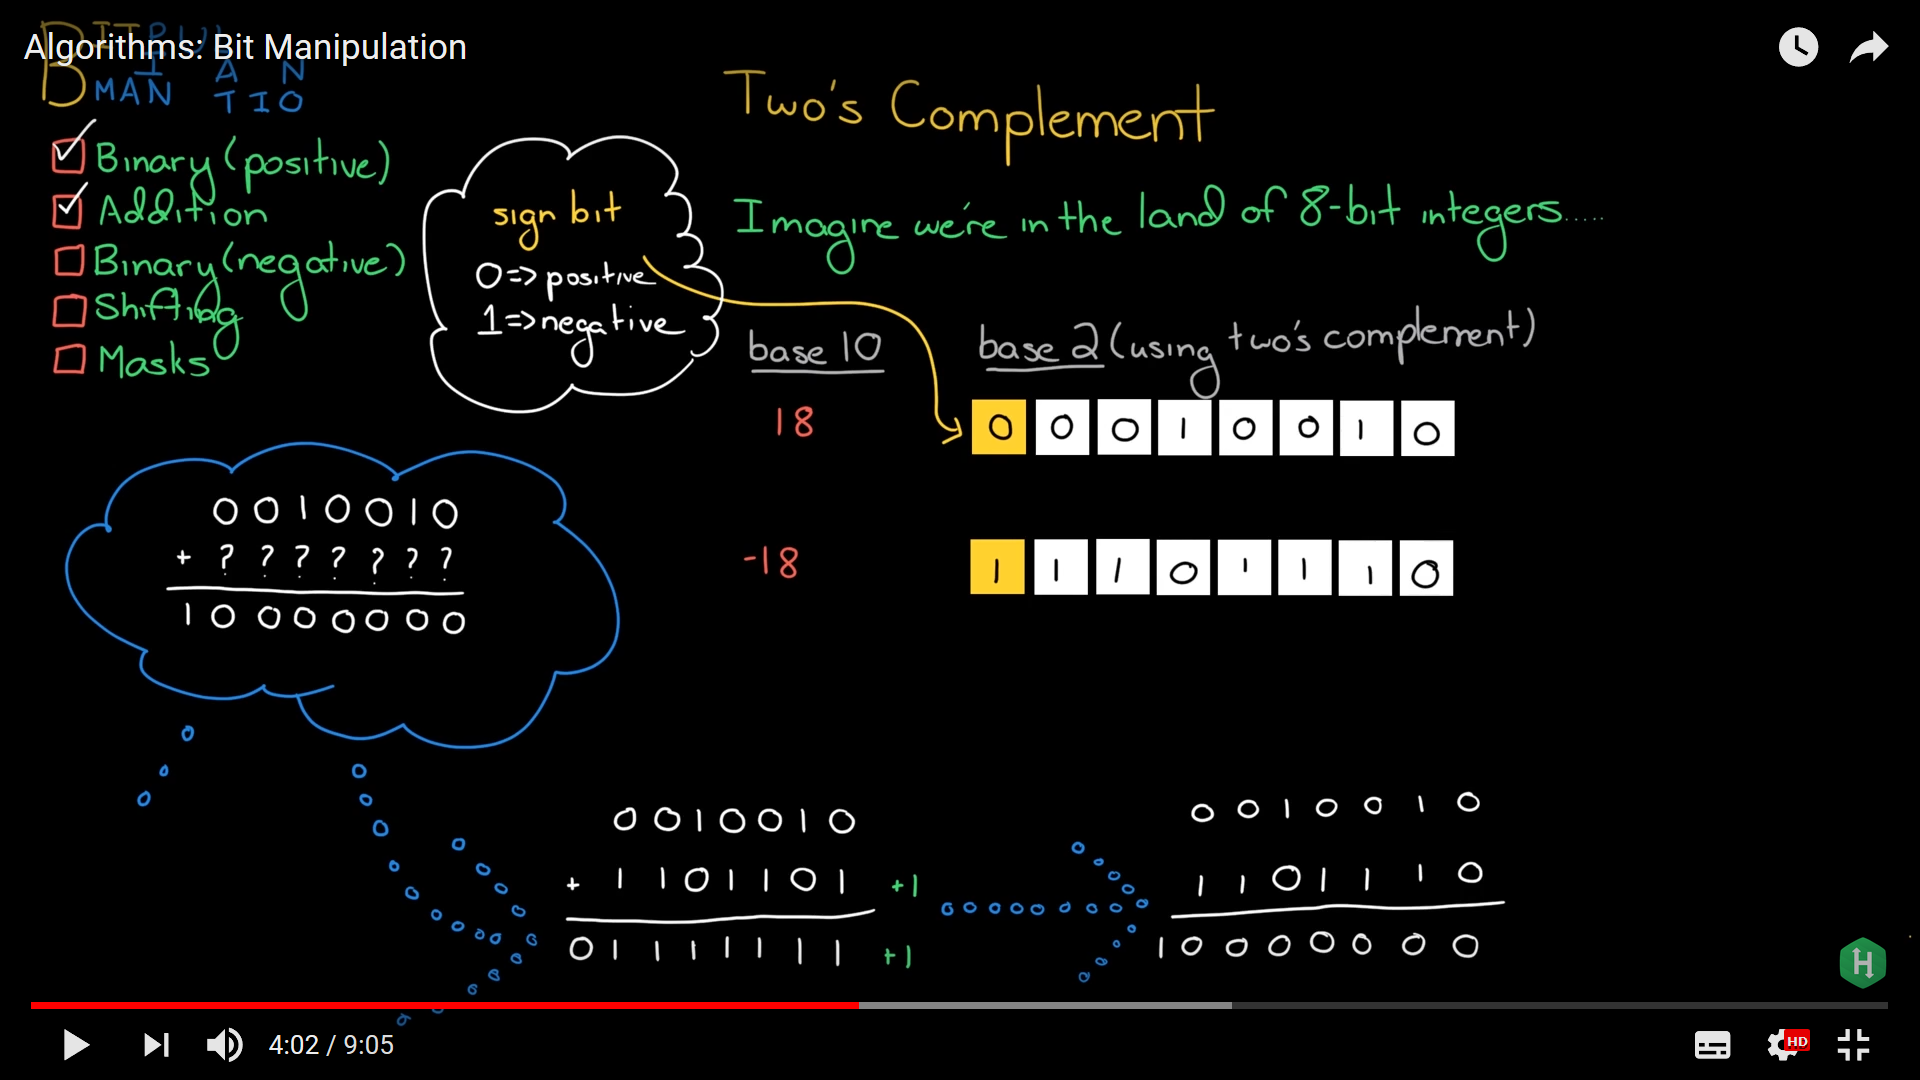 Algorithms: Bit Manipulation
BIT
MANIPULATION
Binary (positive)
Addition
Binary (negative)
Shifting
Masks
sign bit
0=> positive
1=> negative
Two's Complement
Imagine we're in the land of 8-bit integers.....
base 10
base 2 (using two's complement)
18
0 0 0 1 0 0 1 0
-18
1 1 1 0 1 1 1 0
0 0 1 0 0 1 0
+ ? ? ? ? ? ? ?
1 0 0 0 0 0 0 0
0 0 1 0 0 1 0
+ 1 1 0 1 1 0 1 +1
0 1 1 1 1 1 1 1 +1
0 0 1 0 0 1 0
1 1 0 1 1 1 0
1 0 0 0 0 0 0 0
H
4:02 / 9:05
HD